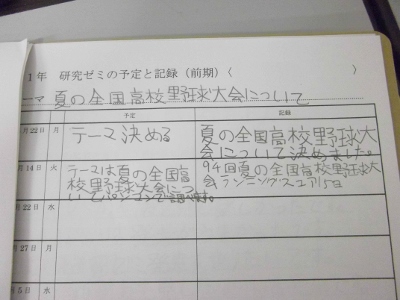 1年 研究ゼミの予定と記録(前期)( )
ーマ 夏の全国高校野球大会について
予定 記録
月22日 月 テーマ決める
夏の全国高校野球大
会について決めました。
月14日 火 テーマは夏の全国高
校野球大会につ
いてパソコンで調べます。
94回夏の全国高校野球大
会ランニングスコア15日
月22日 水
月27日 月
月5日 水